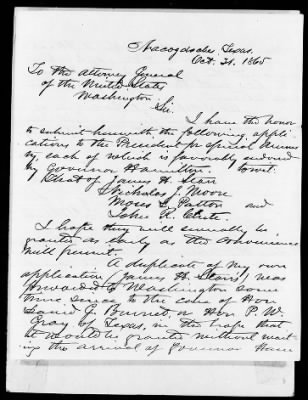 Nacogdoches, Texas.
Oct. 31, 1865
To the Attorney General
of the United States
Washington
Sir.
I have the honor
to submit herewith the following appli
cations to the President for special amnes
ty, each of which is favorably endorsed
by Governor Hamilton. towit:
That of James H. Starr
Nicholas J. Moore
Moses L. Patton and
John R. Clute.
I hope they will severally be
granted as early as the convenience
will permit.
A duplicate of my own
application (James H. Starr's) was
forwarded to Washington some
time since to the care of Hon
David G. Burnet, or Hon P. W.
Gray of Texas, in the hope that
it would be granted without wait-
ing the arrival of Governor Ham